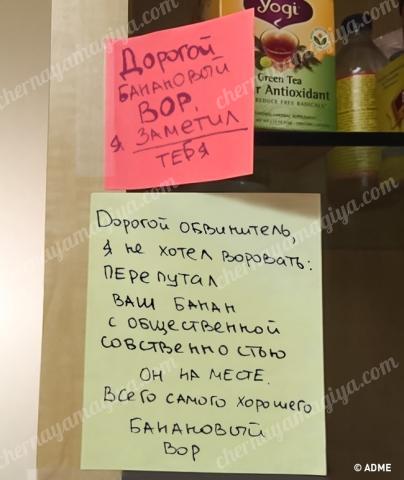 Дорогой
БАНАНОВЫЙ
ВОР,
Я ЗАМЕТИЛ
ТЕБЯ
yogi
Green Tea
r Antioxidant
REDUCE FREE RADICALS
Дорогой обвинитель,
Я не хотел воровать:
перепутал
ваш банан
с общественной
собственностью
он на месте.
Всего самого хорошего
Банановый
вор
chernayamagiya.com
© ADME